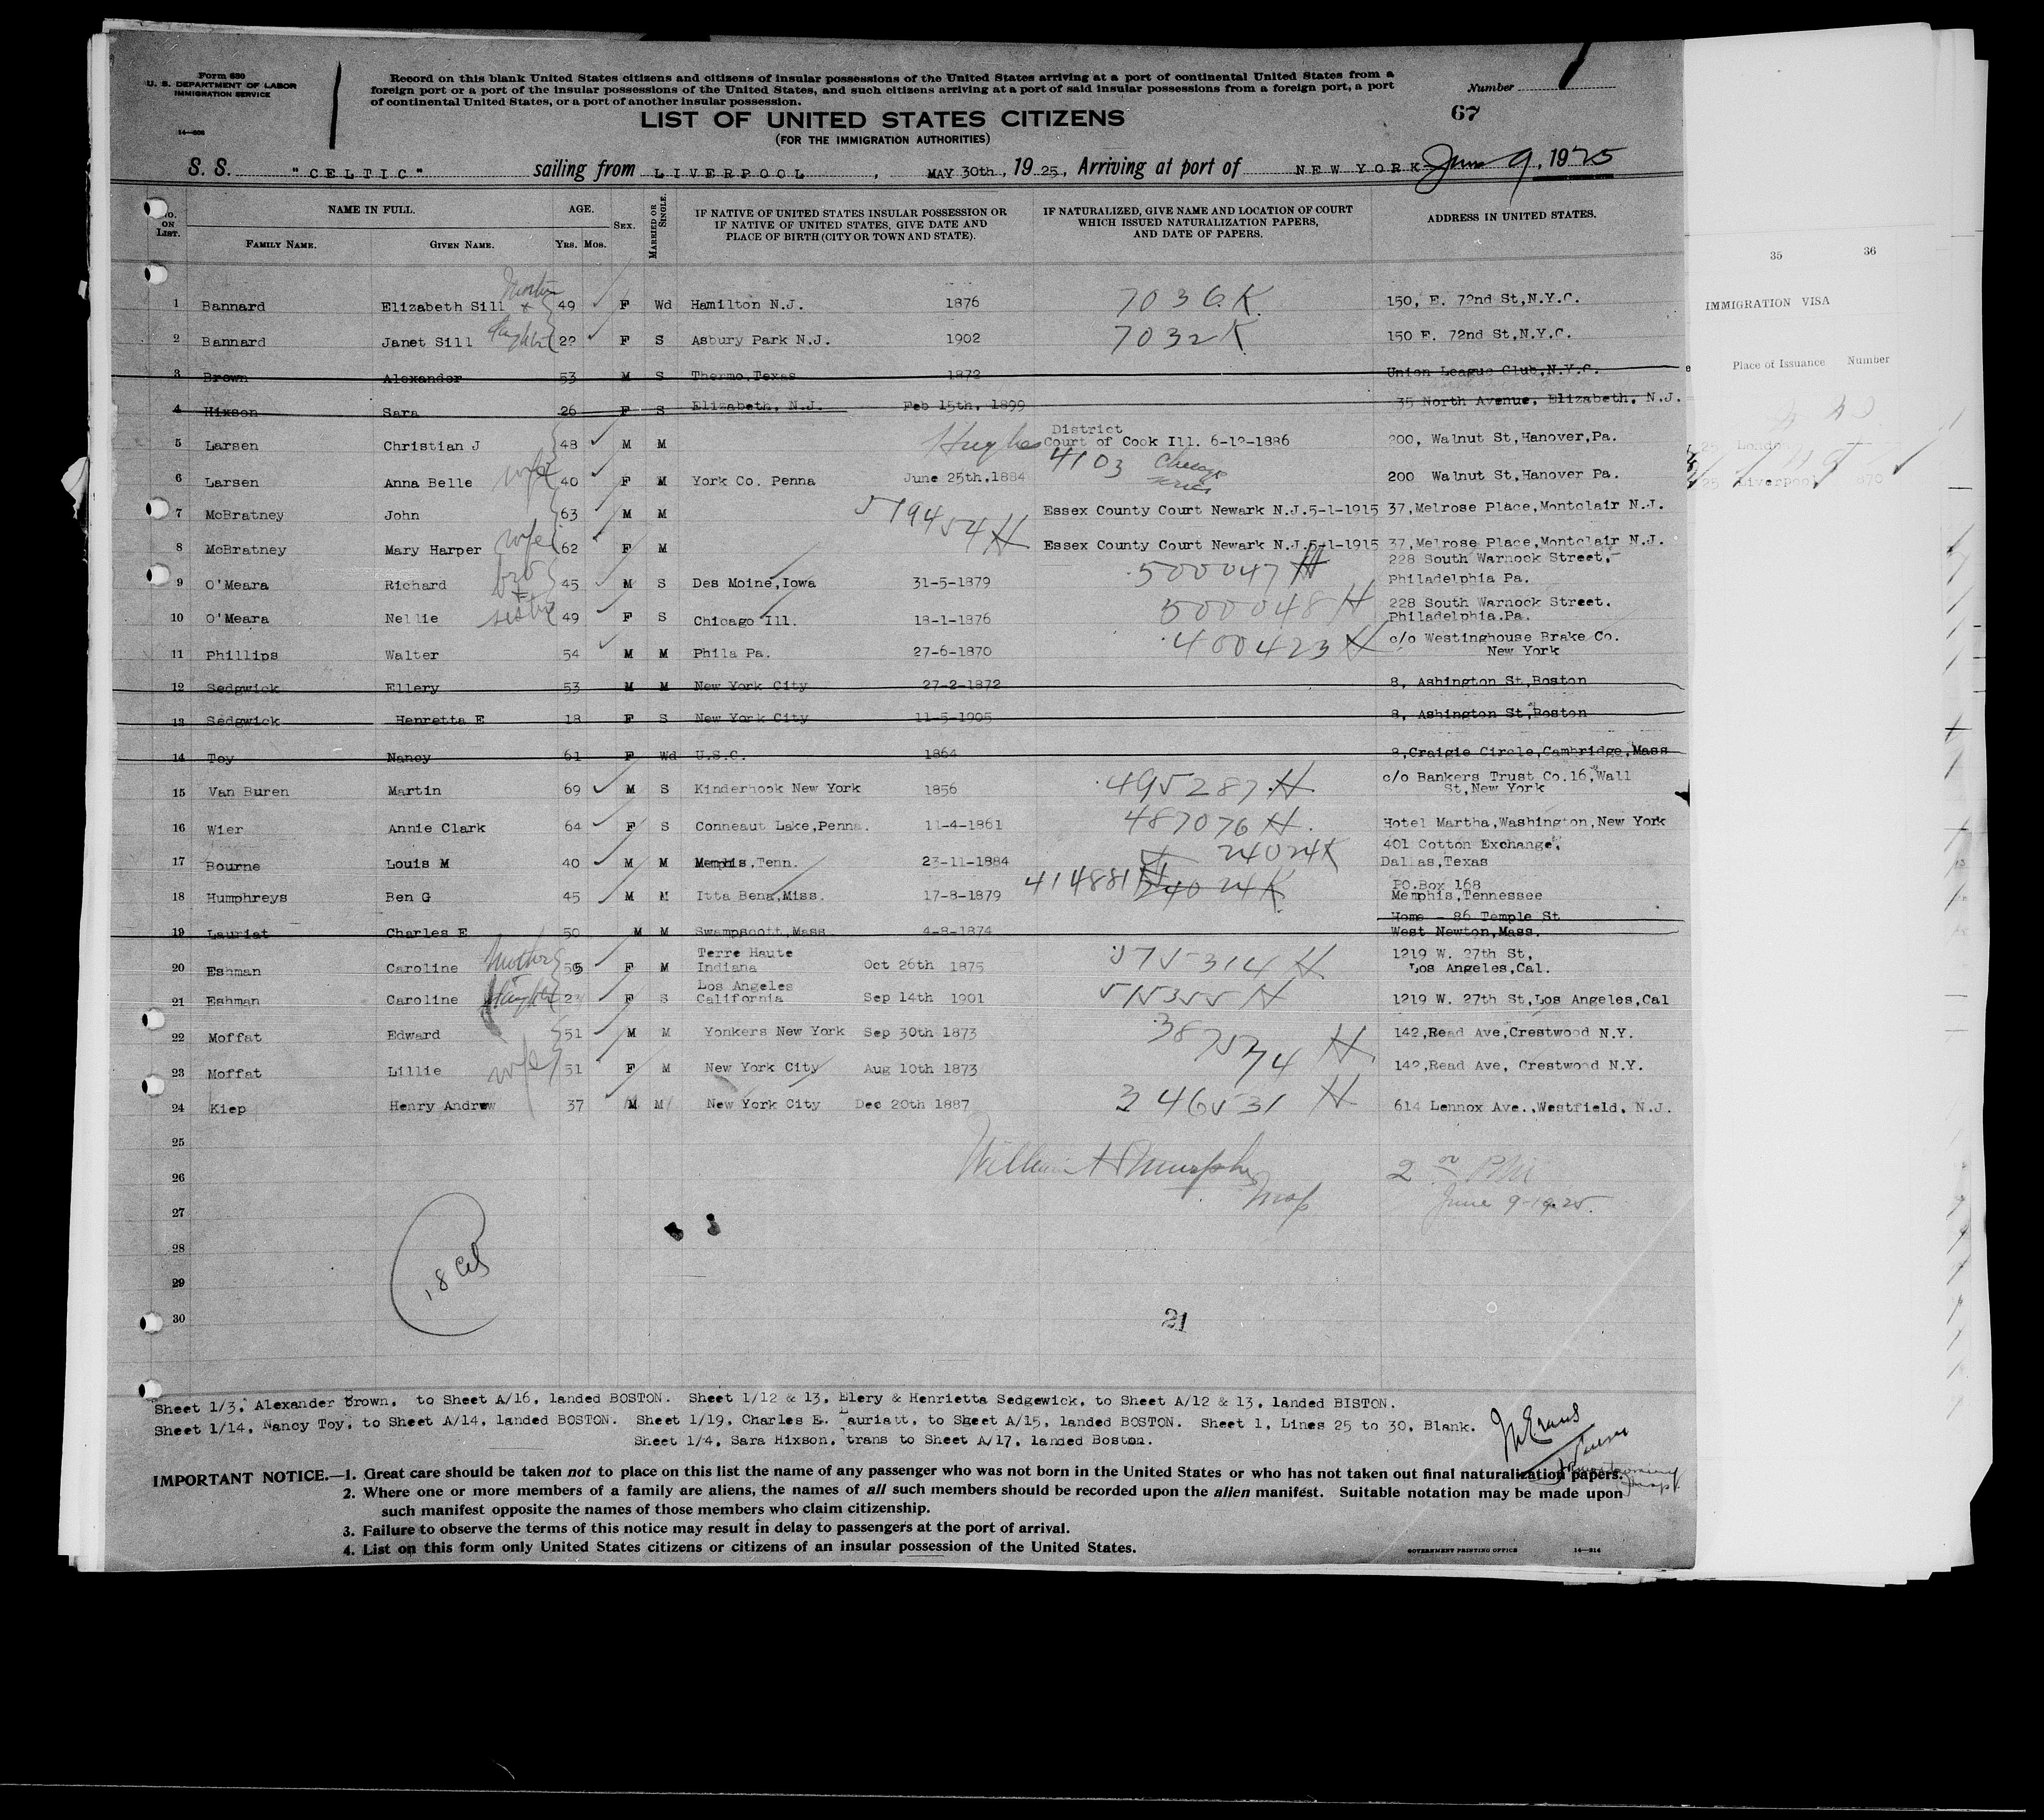 Form 630
U. S. DEPARTMENT OF LABOR
IMMIGRATION SERVICE
Record on this blank United States citizens and citizens of insular possessions of the United States arriving at a port of continental United States from a
foreign port or a port of the insular possessions of the United States, and such citizens arriving at a port of said insular possessions from a foreign port, a port
of continental United States, or a port of another insular possession.
Number 1
67
LIST OF UNITED STATES CITIZENS
(FOR THE IMMIGRATION AUTHORITIES)
S. S. "CELTIC" sailing from LIVERPOOL, MAY 30th, 1925, Arriving at port of NEW YORK June 9, 1925
No. ON LIST. NAME IN FULL. FAMILY NAME. GIVEN NAME. AGE. YRS. MOS. SEX. MARRIED OR SINGLE.
IF NATIVE OF UNITED STATES INSULAR POSSESSION OR IF NATIVE OF UNITED STATES, GIVE DATE AND PLACE OF BIRTH (CITY OR TOWN AND STATE).
IF NATURALIZED, GIVE NAME AND LOCATION OF COURT WHICH ISSUED NATURALIZATION PAPERS, AND DATE OF PAPERS.
ADDRESS IN UNITED STATES.
35 36
IMMIGRATION VISA
Place of Issuance Number
1 Bannard Elizabeth Sill 49 F Wd Hamilton N.J. 1876 7036 K 150, E. 72nd St,N.Y.C.
2 Bannard Janet Sill daughter 22 F S Asbury Park N.J. 1902 7032 K 150 E. 72nd St,N.Y.C.
3 Brown Alexander 53 M S Thermo,Texas 1872 Union League Club,N.Y.C.
4 Hixson Sara 26 F S Elizabeth, N.J. Feb 15th, 1899 35 North Avenue, Elizabeth, N.J.
5 Larsen Christian J 48 M M Hughes District Court of Cook Ill. 6-12-1886 200, Walnut St,Hanover,Pa.
6 Larsen Anna Belle wife 40 F M York Co. Penna June 25th,1884 4103 Chicago series 200 Walnut St,Hanover Pa.
7 McBratney John 63 M M 519454 H Essex County Court Newark N.J.5-1-1915 37,Melrose Place,Montclair N.J.
8 McBratney Mary Harper wife 62 F M Essex County Court Newark N.J.5-1-1915 37,Melrose Place,Montclair N.J.
9 O'Meara Richard bro 45 M S Des Moine,Iowa 31-5-1879 500047 H 228 South Warnock Street, Philadelphia Pa.
10 O'Meara Nellie sister 49 F S Chicago Ill. 18-1-1876 500048 H 228 South Warnock Street. Philadelphia.Pa.
11 Phillips Walter 54 M M Phila Pa. 27-6-1870 400423 H c/o Westinghouse Brake Co. New York
12 Sedgwick Ellery 53 M M New York City 27-2-1872 8, Ashington St,Boston
13 Sedgwick Henretta E 18 F S New York City 11-5-1905 8, Ashington St,Boston
14 Toy Nancy 61 F Wd U.S.C. 1864 8,Craigie Circle,Cambridge,Mass
15 Van Buren Martin 69 M S Kinderhook New York 1856 495287 H c/o Bankers Trust Co.16,Wall St,New York
16 Wier Annie Clark 64 F S Conneaut Lake,Penna. 11-4-1861 487076 H. Hotel Martha,Washington,New York
17 Bourne Louis M 40 M M Memphis,Tenn. 23-11-1884 24024K 401 Cotton Exchange, Dallas,Texas
18 Humphreys Ben G 45 M M Itta Bena,Miss. 17-8-1879 414881 H 24024 K PO.Box 168 Memphis,Tennessee
19 Lauriat Charles E 50 M M Swampscott,Mass 4-8-1874 Home - 86 Temple St West Newton,Mass.
20 Eshman Caroline Mother F M Terre Haute Indiana Oct 26th 1875 515314 H 1219 W. 27th St, Los Angeles,Cal.
21 Eshman Caroline daughter 23 F S Los Angeles California Sep 14th 1901 515355 H 1219 W. 27th St,Los Angeles,Cal
22 Moffat Edward 51 M M Yonkers New York Sep 30th 1873 387574 H 142,Read Ave,Crestwood N.Y.
23 Moffat Lillie wife 51 F M New York City Aug 10th 1873 142,Read Ave, Crestwood N.Y.
24 Kiep Henry Andrew 37 M M New York City Dec 20th 1887 346531 H 614 Lennox Ave.,Westfield, N.J.
25
26
27
28
29
30
William H Murphy
Insp
June 9-1925.
21
Sheet 1/3, Alexander Brown, to Sheet A/16, landed BOSTON. Sheet 1/12 & 13, Elery & Henrietta Sedgewick, to Sheet A/12 & 13, landed BISTON.
Sheet 1/14, Nancy Toy, to Sheet A/14, landed BOSTON. Sheet 1/19, Charles E. Lauriatt, to Sheet A/15, landed BOSTON. Sheet 1, Lines 25 to 30, Blank.
Sheet 1/4, Sara Hixson, trans to Sheet A/17, landed Boston.
IMPORTANT NOTICE.—1. Great care should be taken not to place on this list the name of any passenger who was not born in the United States or who has not taken out final naturalization papers.
2. Where one or more members of a family are aliens, the names of all such members should be recorded upon the alien manifest. Suitable notation may be made upon
such manifest opposite the names of those members who claim citizenship.
3. Failure to observe the terms of this notice may result in delay to passengers at the port of arrival.
4. List on this form only United States citizens or citizens of an insular possession of the United States.
GOVERNMENT PRINTING OFFICE 14—214